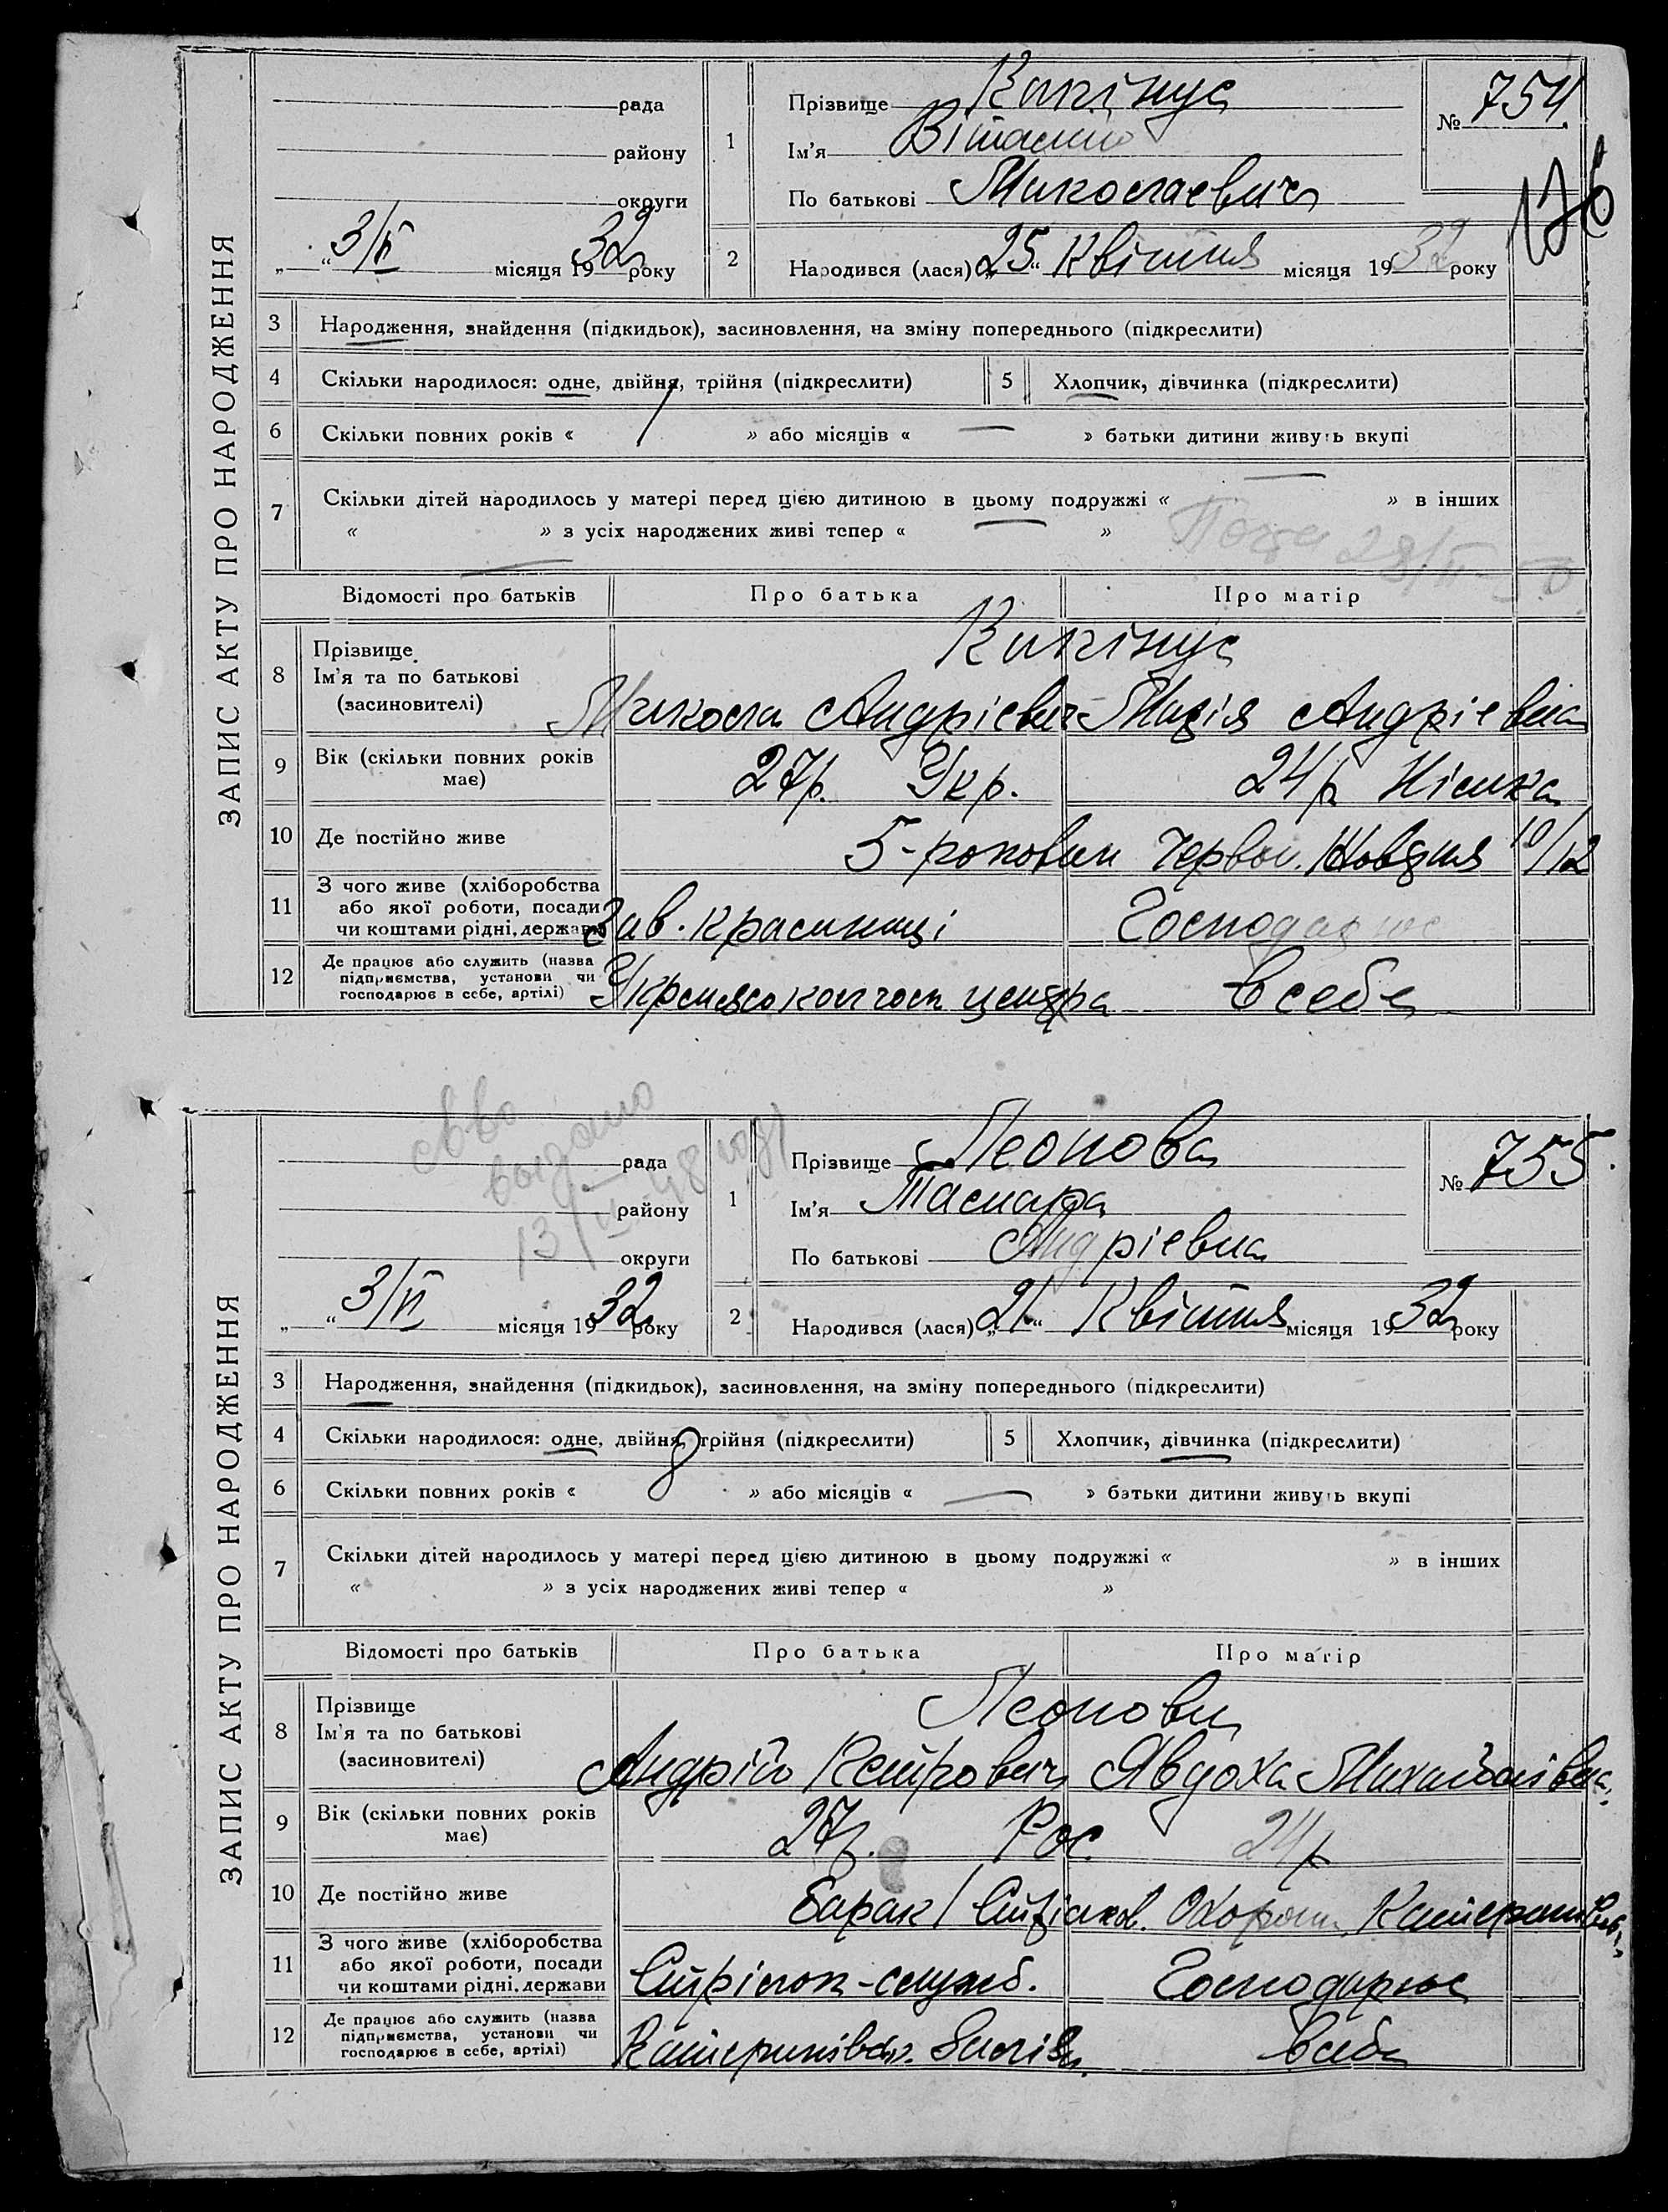 ЗАПИС АКТУ ПРО НАРОДЖЕННЯ
рада
району
округи
„ “ 3/VI місяця 1932 року
1
Прізвище
Ім'я Віталій
По батькові Миколаєвич
№ 754
176
2
Народився (лася) „25“ Квітня місяця 1932 року
3 Народження, знайдення (підкидьок), засиновлення, на зміну попереднього (підкреслити)
4 Скільки народилося: одне, двійня, трійня (підкреслити)
5 Хлопчик, дівчинка (підкреслити)
6 Скільки повних років « / » або місяців « — » батьки дитини живуть вкупі
7 Скільки дітей народилось у матері перед цією дитиною в цьому подружжі « — » в інших
« — » з усіх народжених живі тепер « — »
Відомості про батьків Про батька Про матір
8 Прізвище
Ім'я та по батькові
(засиновителі)
Микола Андрієвич Марія Андрієвна
9 Вік (скільки повних років має)
27р. Укр. 24р Німка
10 Де постійно живе
5-роковин Червон. Жовтня 10/12
11 З чого живе (хліборобства або якої роботи, посади чи коштами рідні, держави
Зав. крамниці Господарює
12 Де працює або служить (назва підприємства, установи чи господарює в себе, артілі)
в себе
ЗАПИС АКТУ ПРО НАРОДЖЕННЯ
выдано
рада
району
округи
„ “ 3/VI місяця 1932 року
1
Прізвище Леонова
Ім'я Тамара
По батькові Андрієвна
№ 755
2
Народився (лася) „21“ Квітня місяця 1932 року
3 Народження, знайдення (підкидьок), засиновлення, на зміну попереднього (підкреслити)
4 Скільки народилося: одне, двійня, трійня (підкреслити)
5 Хлопчик, дівчинка (підкреслити)
6 Скільки повних років « 8 » або місяців « — » батьки дитини живуть вкупі
7 Скільки дітей народилось у матері перед цією дитиною в цьому подружжі « » в інших
« » з усіх народжених живі тепер « »
Відомості про батьків Про батька Про матір
8 Прізвище
Ім'я та по батькові
(засиновителі)
Леонови
Андрій Петрович Явдоха Михайлівна
9 Вік (скільки повних років має)
27р. Рос. 24р
10 Де постійно живе
Барак Стрілков. Охорони
11 З чого живе (хліборобства або якої роботи, посади чи коштами рідні, держави
Стрілок-служб. Господарює
12 Де працює або служить (назва підприємства, установи чи господарює в себе, артілі)
в себе